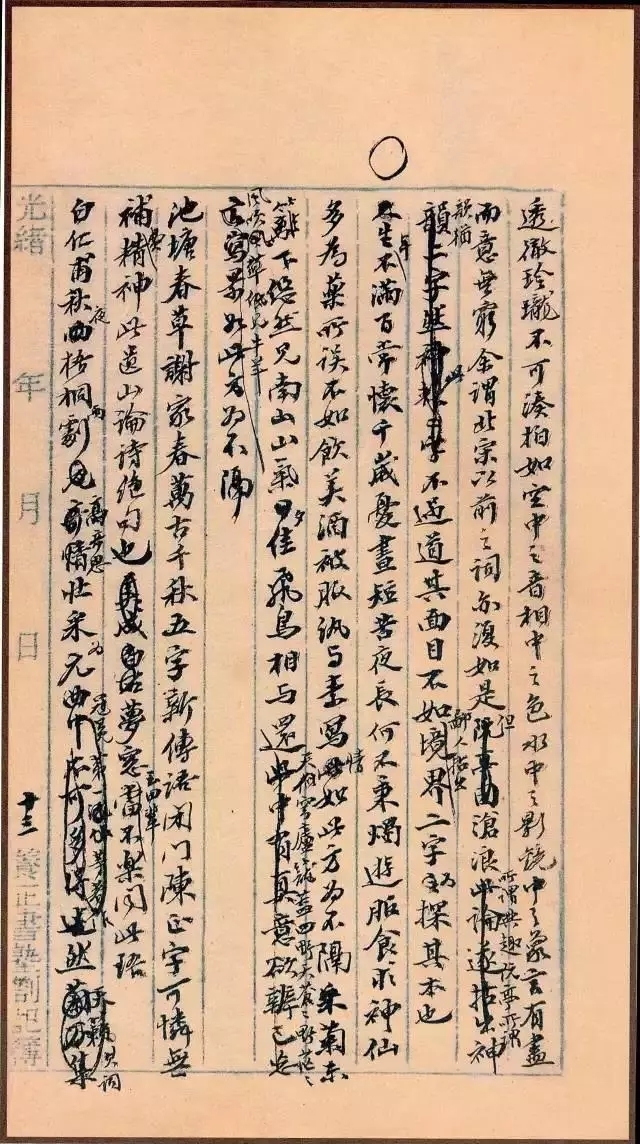 透徹玲瓏不可湊拍如空中之音相中之色水中之影鏡中之象言有盡
而意無窮余謂北宋以前之詞亦復如是但滄浪
所謂興趣阮亭所謂神
韻猶
不過道其面目不如
鄙人拈出
境界二字為探其本也
生年不滿百常懷千歲憂晝短苦夜長何不秉燭遊服食求神仙
多為藥所誤不如飲美酒被服紈與素寫情如此方為不隔采菊東
籬下悠然見南山山氣日夕佳飛鳥相與還此中有真意欲辨已忘
天似穹廬籠蓋四野天蒼蒼野茫茫
風吹草低見牛羊
言寫景如此方為不隔
池塘春草謝家春萬古千秋五字新傳語閉門陳正字可憐無
補費精神此遺山論詩絕句也夢窗玉田輩當不樂聞此語
白仁甫秋夜梧桐雨劇
奇思壯采為元曲冠冕然
光緒 年 月 日
十三
養正書塾劄記簿